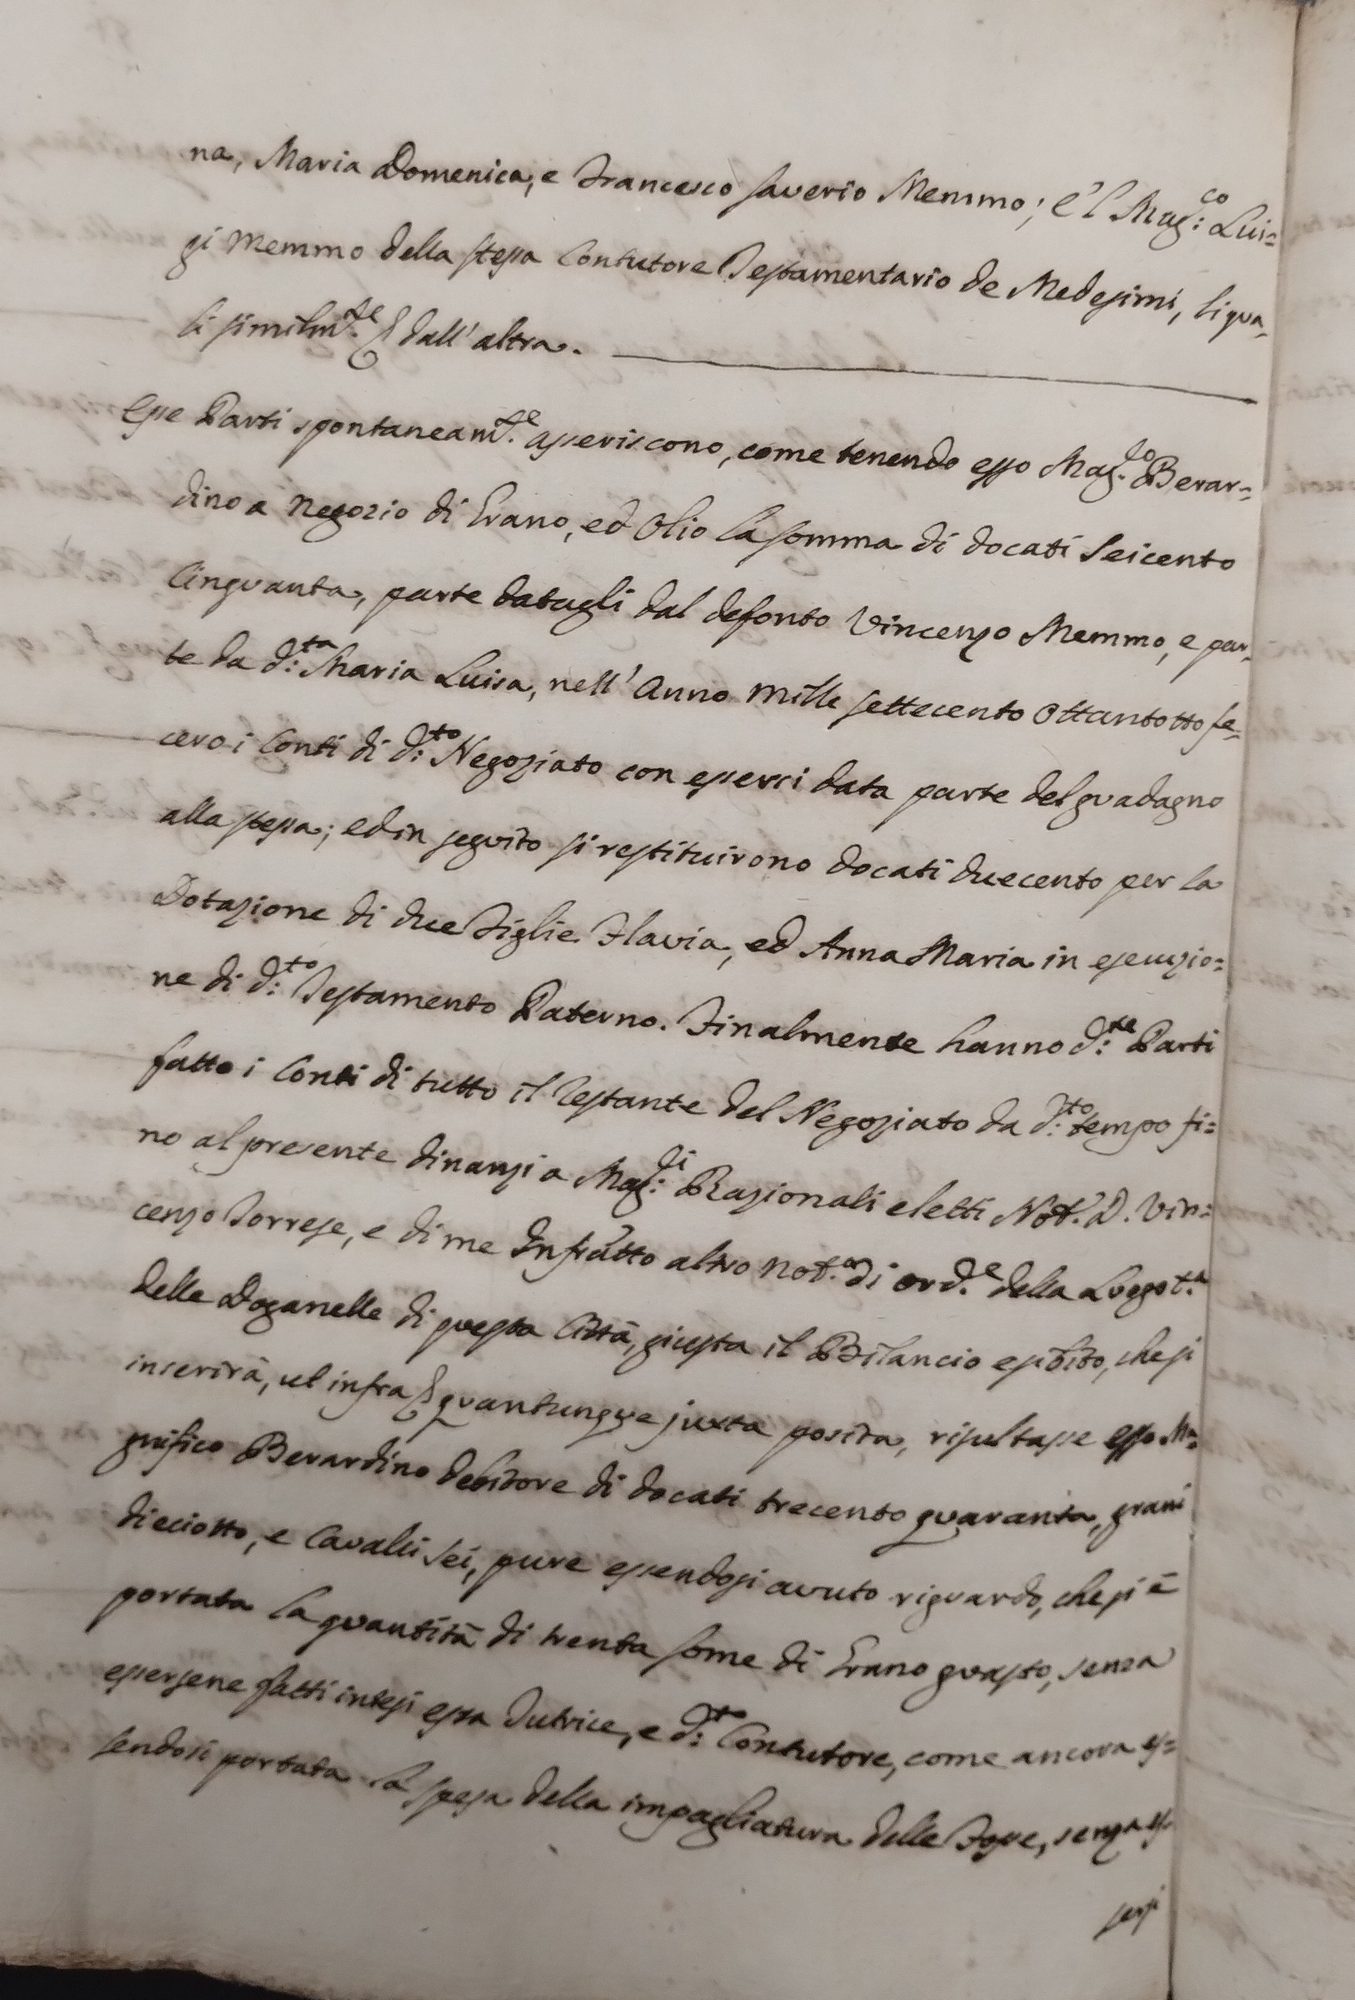 na, Maria Domenica, e Francesco Saverio Memmo; e'l Mag:co Lui=
gi Memmo della stessa Contutore Testamentario de Medesimi, li qua=
li similm.te & dall'altra.
Esse Parti spontaneam.te asseriscono, come tenendo esso Mag.co Berar=
dino a negozio di Grano, ed Olio la somma di docati Seicento
Cinquanta, parte datagli dal defonto Vincenzo Memmo, e par=
te da d:ta Maria Luisa, nell'Anno mille settecento ottantotto fe=
cero i Conti di d:to Negoziato con essersi data parte del guadagno
alla stessa; ed in seguito si restituirono docati duecento per la
Dotazione di due Figlie Flavia, ed Anna Maria in esecuzio=
ne di d:to Testamento Paterno. Finalmente hanno d:te Parti
fatto i Conti di tutto il restante del Negoziato da d:to tempo fi=
no al presente dinanzi a Mag:ci Razionali eletti Not.r D. Vin=
cenzo Torrese, e di me Infratto altro Not.r di ord.e della Luogot.a
delle Doganelle di questa Città, giusta il Bilancio esibito, che si
inserirà, ut infra & quantunque juxta posita, risultasse esso Ma=
gnifico Berardino debitore di docati trecento quaranta, grani
dieciotto, e Cavalli sei, pure essendosi avuto riguardo, che si è
portata la quantità di trenta some di Grano guasto, senza
essersene fatti intesi essa Tutrice, e d:to Contutore, come ancora es=
sendosi portata la spesa della impagliatura delle Fosse, senza es=
sersi